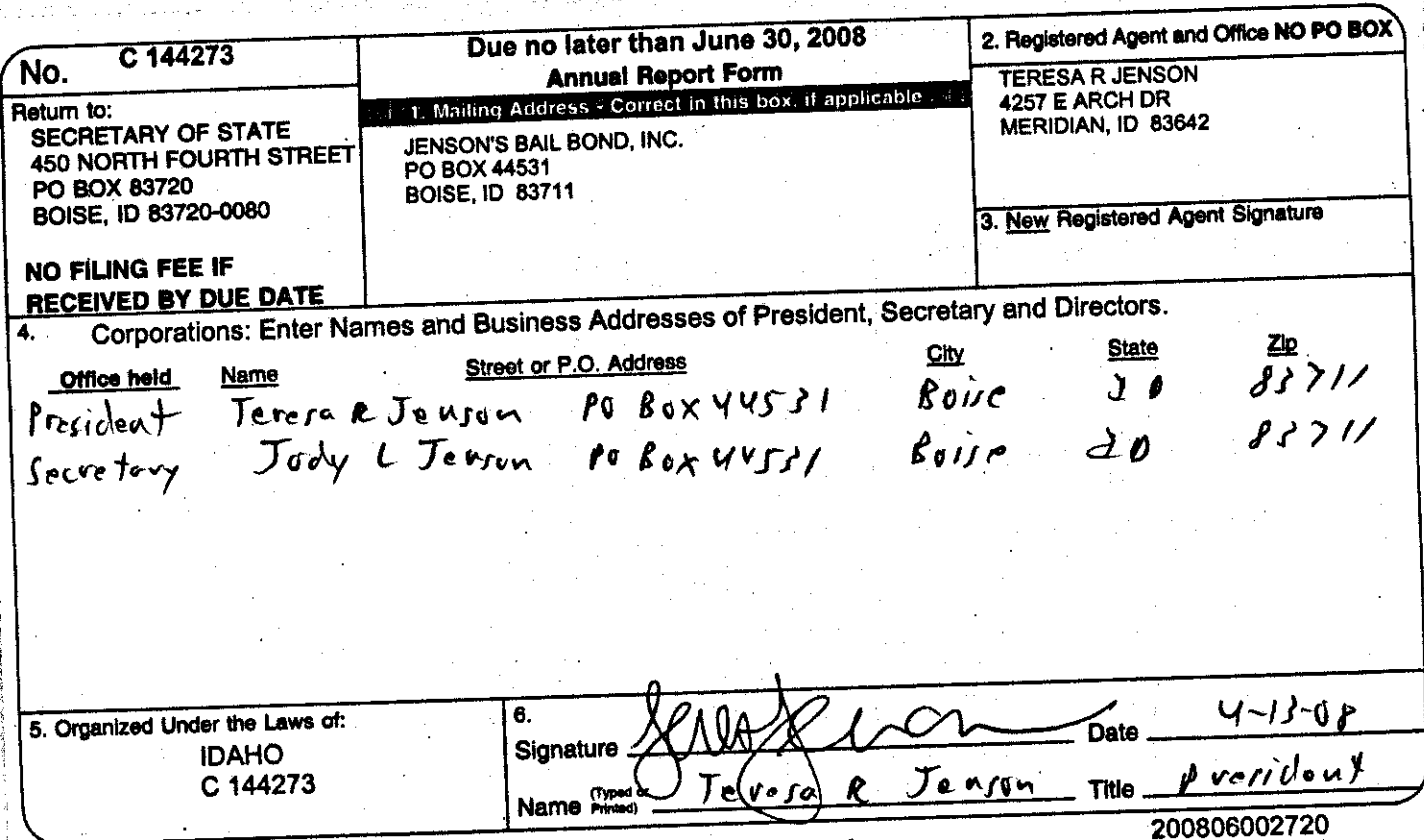 No. C 144273
Return to:
SECRETARY OF STATE
450 NORTH FOURTH STREET
PO BOX 83720
BOISE, ID 83720-0080
NO FILING FEE IF
RECEIVED BY DUE DATE
Due no later than June 30, 2008
Annual Report Form
1. Mailing Address - Correct in this box, if applicable
JENSON'S BAIL BOND, INC.
PO BOX 44531
BOISE, ID 83711
2. Registered Agent and Office NO PO BOX
TERESA R JENSON
4257 E ARCH DR
MERIDIAN, ID 83642
3. New Registered Agent Signature
4. Corporations: Enter Names and Business Addresses of President, Secretary and Directors.
Office held Name Street or P.O. Address City State Zip
President Teresa R Jenson PO Box 44531 Boise ID 83711
Secretary Jody L Jenson PO Box 44531 Boise ID 83711
5. Organized Under the Laws of:
IDAHO
C 144273
6.
Signature Date 4-13-08
Name (Typed or Printed) Teresa R Jenson Title President
200806002720